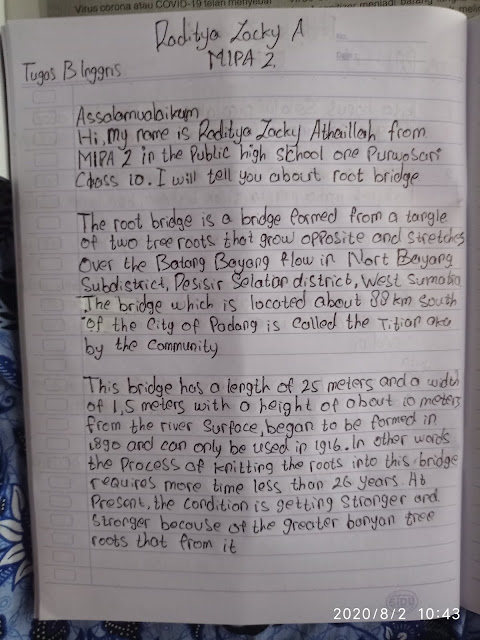 Virus corona atau COVID-19 telah menyebar
menjadi barang
Raditya Zacky A
MIPA 2
No.
Date
Tugas B Inggris
Assalamualaikum
Hi, my name is Raditya Zacky Athaillah from
MIPA 2 in the Public high school one Purwosari
Class 10. I will tell you about root bridge
The root bridge is a bridge formed from a tangle
of two tree roots that grow opposite and stretches
over the Batang Bayang flow in Nort Bayang
Subdistrict, Pesisir Selatan district, West Sumatra
The bridge which is located about 88 km south
of the City of Padang is called the Titian aka
by the community
This bridge has a length of 25 meters and a width
of 1,5 meters with a height of about 10 meters
from the river surface, began to be formed in
1890 and can only be used in 1916. In other words
the process of knitting the roots into this bridge
requires more time less than 26 years. At
Present, the condition is getting stronger and
stronger because of the greater banyan tree
roots that from it
SIDU
2020/8/2 10:43